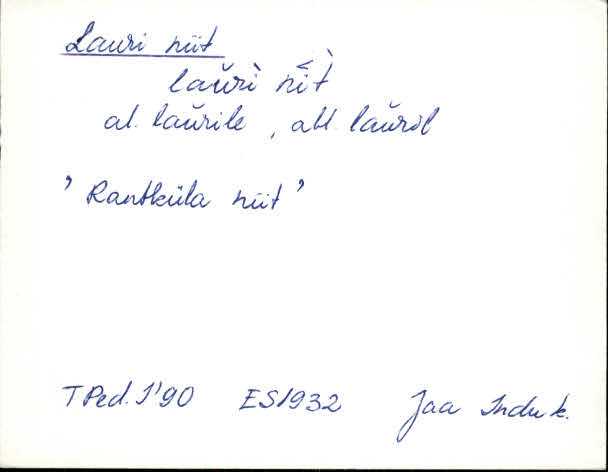 Lauri niit
lau̬ri nīt̀
al. lau̬rile, abl. lau̬ril
' Rantküla niit '
TPed. I'90 ES1932 Jaa Induk.